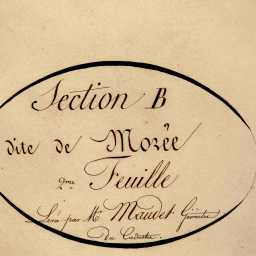 Section B
dite de Morée
2ème Feuille
Levé par Mr Maudet Géomètre
du Cadastre.